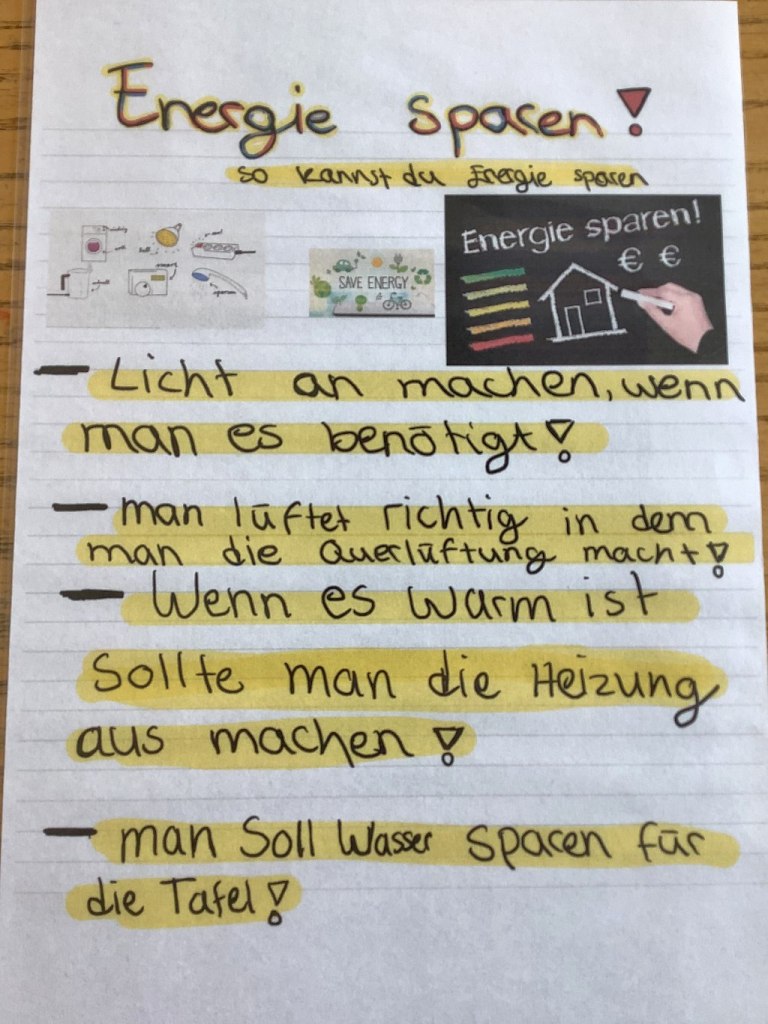 Energie sparen!
so kannst du Energie sparen
Energie sparen!
€ €
SAVE ENERGY
– Licht an machen, wenn
man es benötigt!
– man lüftet richtig in dem
man die Querlüftung macht!
– Wenn es warm ist
Sollte man die Heizung
aus machen!
– man Soll Wasser sparen für
die Tafel!